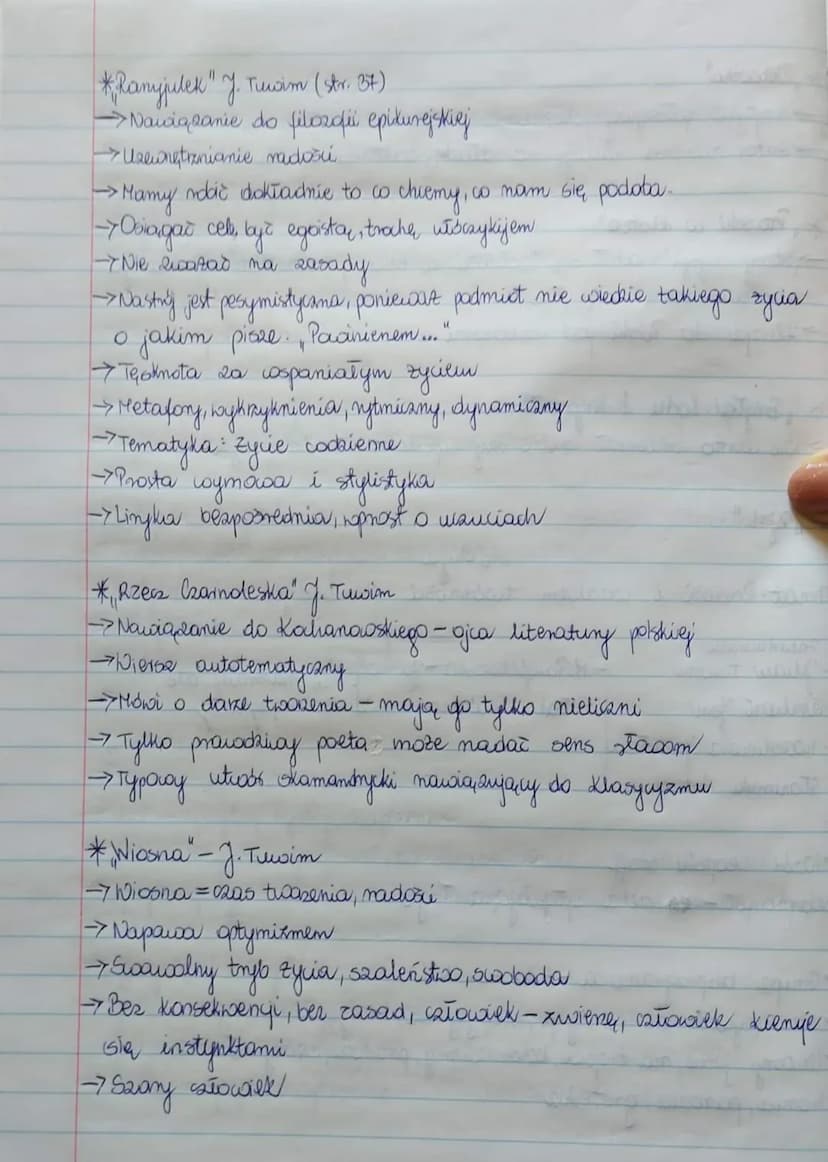 *„Ranyjulek" J. Tuwim (str. 37)
→Nawiązanie do filozofii epikurejskiej
→Uzewnętrznianie radości
→Mamy robić dokładnie to co chcemy, co nam się podoba.
→Osiągać cele, być egoistą, trochę włóczykijem
→Nie zważać na zasady
→Nastrój jest pesymistyczna, ponieważ podmiot nie wiedzie takiego życia
o jakim pisze. „Powinienem..."
→Tęsknota za wspaniałym życiem
→Metafory, wykrzyknienia, rytmiczny, dynamiczny
→Tematyka: życie codzienne
→Prosta wymowa i stylistyka
→Liryka bezpośrednia, wprost o uczuciach
*„Rzecz Czarnoleska" J. Tuwim
→Nawiązanie do Kochanowskiego – ojca literatury polskiej
→Wiersz autotematyczny
→Mówi o darze tworzenia – mają go tylko nieliczni
→Tylko prawdziwy poeta może nadać sens słowom
→Typowy utwór skamandrycki nawiązujący do klasycyzmu
*„Wiosna" – J. Tuwim
→Wiosna = czas tworzenia, radości
→Napawa optymizmem
→Swawolny tryb życia, szaleństwo, swoboda
→Bez konsekwencji, bez zasad, człowiek – zwierzę, człowiek kieruje
się instynktami
→Szary człowiek